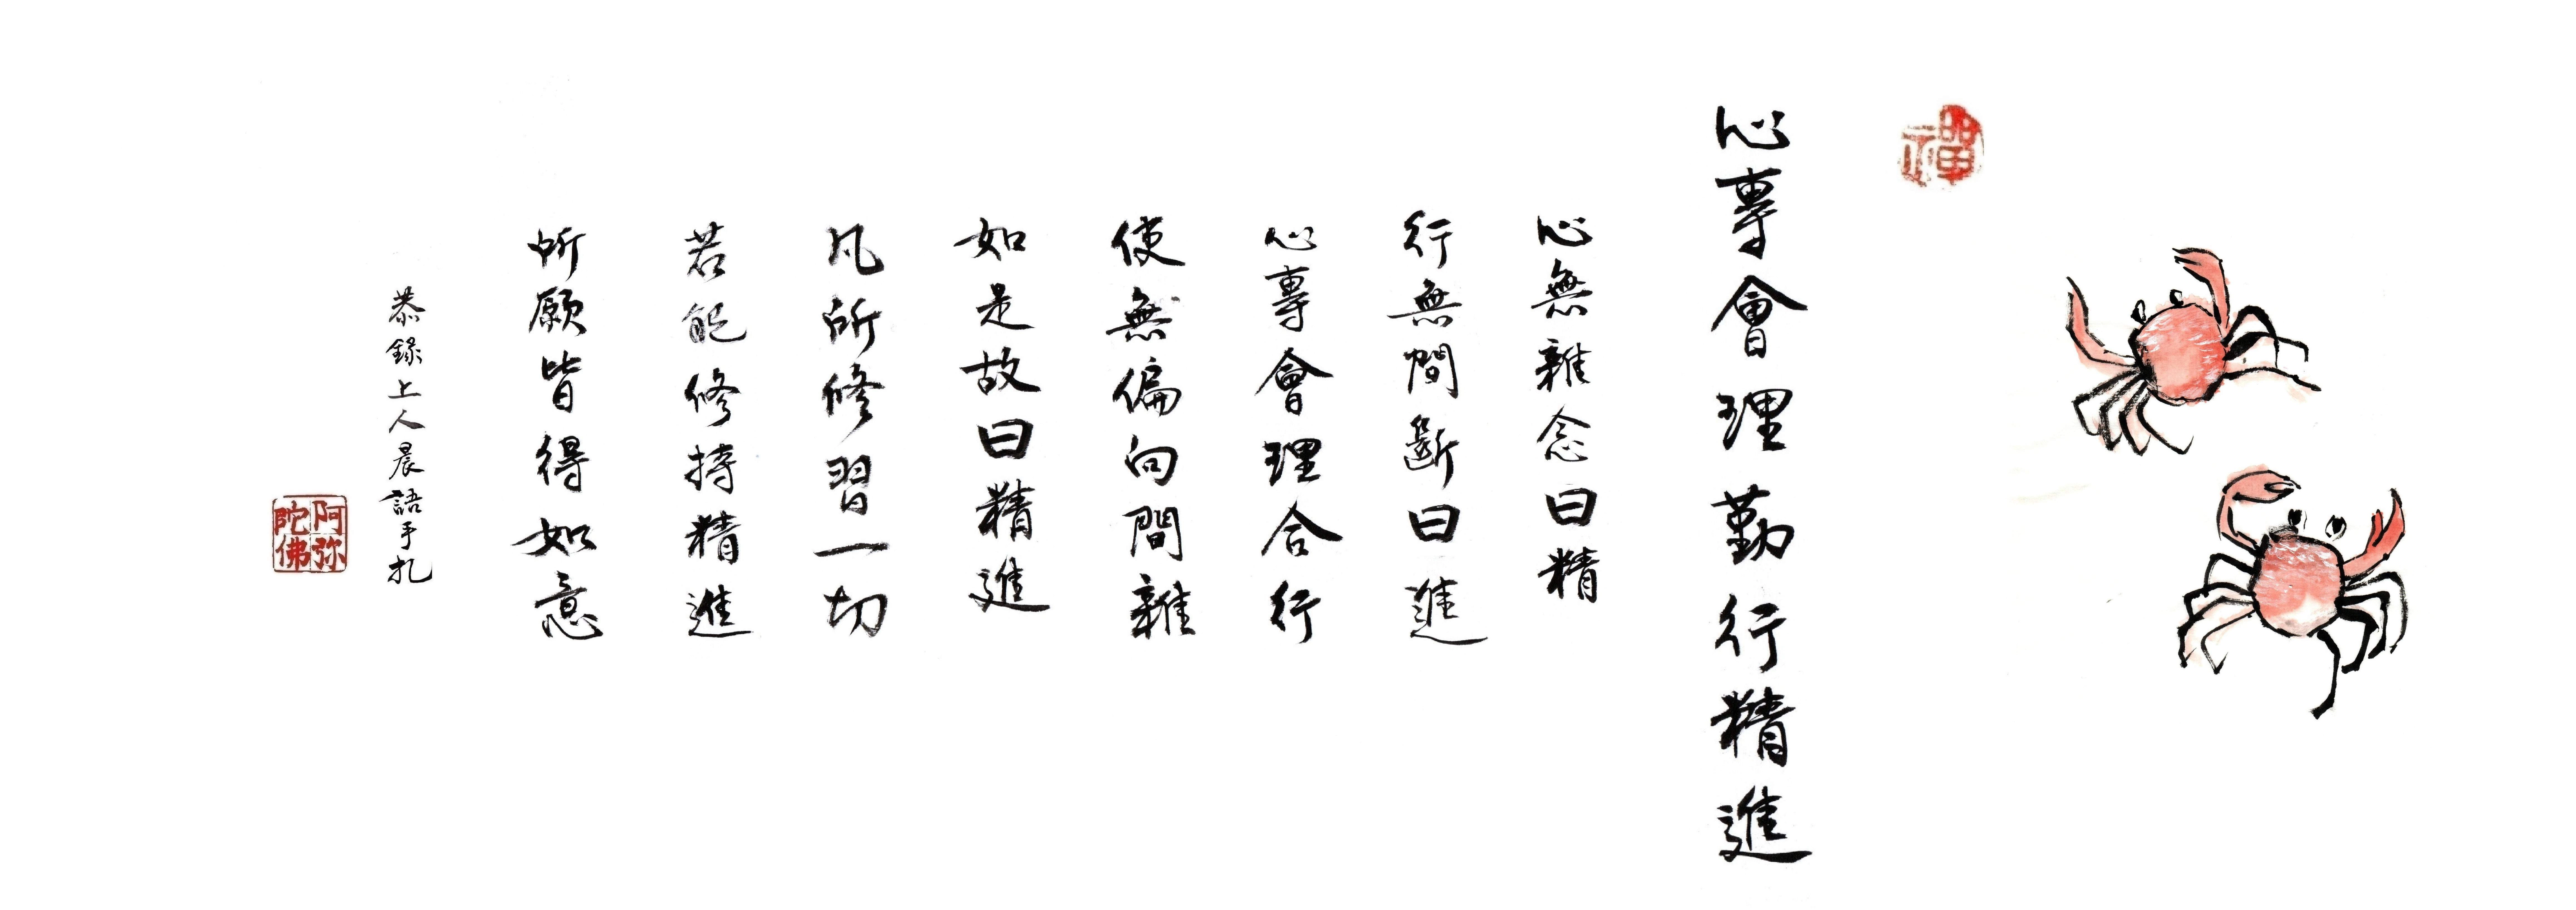 禪
心專會理勤行精進
心無雜念曰精
行無間斷曰進
心專會理合行
使無偏向間雜
如是故曰精進
凡所修習一切
若能修持精進
所願皆得如意
恭錄上人晨語手札
阿弥陀佛